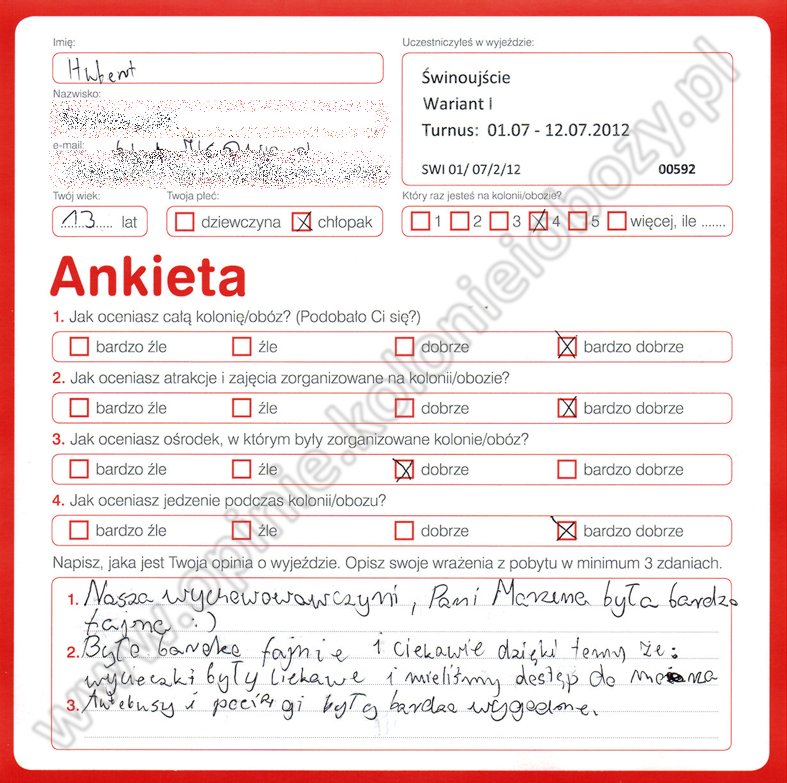 Imię:
Hubert
Nazwisko:
e-mail:
Twój wiek:
13 lat
Twoja płeć:
dziewczyna chłopak
Uczestniczyłeś w wyjeździe:
Świnoujście
Wariant I
Turnus: 01.07 - 12.07.2012
SWI 01/ 07/2/12 00592
Który raz jesteś na kolonii/obozie?
1 2 3 4 5 więcej, ile .......
Ankieta
1. Jak oceniasz całą kolonię/obóz? (Podobało Ci się?)
bardzo źle źle dobrze bardzo dobrze
2. Jak oceniasz atrakcje i zajęcia zorganizowane na kolonii/obozie?
bardzo źle źle dobrze bardzo dobrze
3. Jak oceniasz ośrodek, w którym były zorganizowane kolonie/obóz?
bardzo źle źle dobrze bardzo dobrze
4. Jak oceniasz jedzenie podczas kolonii/obozu?
bardzo źle źle dobrze bardzo dobrze
Napisz, jaka jest Twoja opinia o wyjeździe. Opisz swoje wrażenia z pobytu w minimum 3 zdaniach.
1. Nasza wychewowawczyni, Pani Marzena była bardzo
fajna :)
2. Było bardzo fajnie i ciekawie dzięki temu że:
wycieczki były ciekawe i mieliśmy dostęp do morza
3. Autobusy i pociągi były bardzo wygodne.
www.opinie.kolonieiobozy.pl